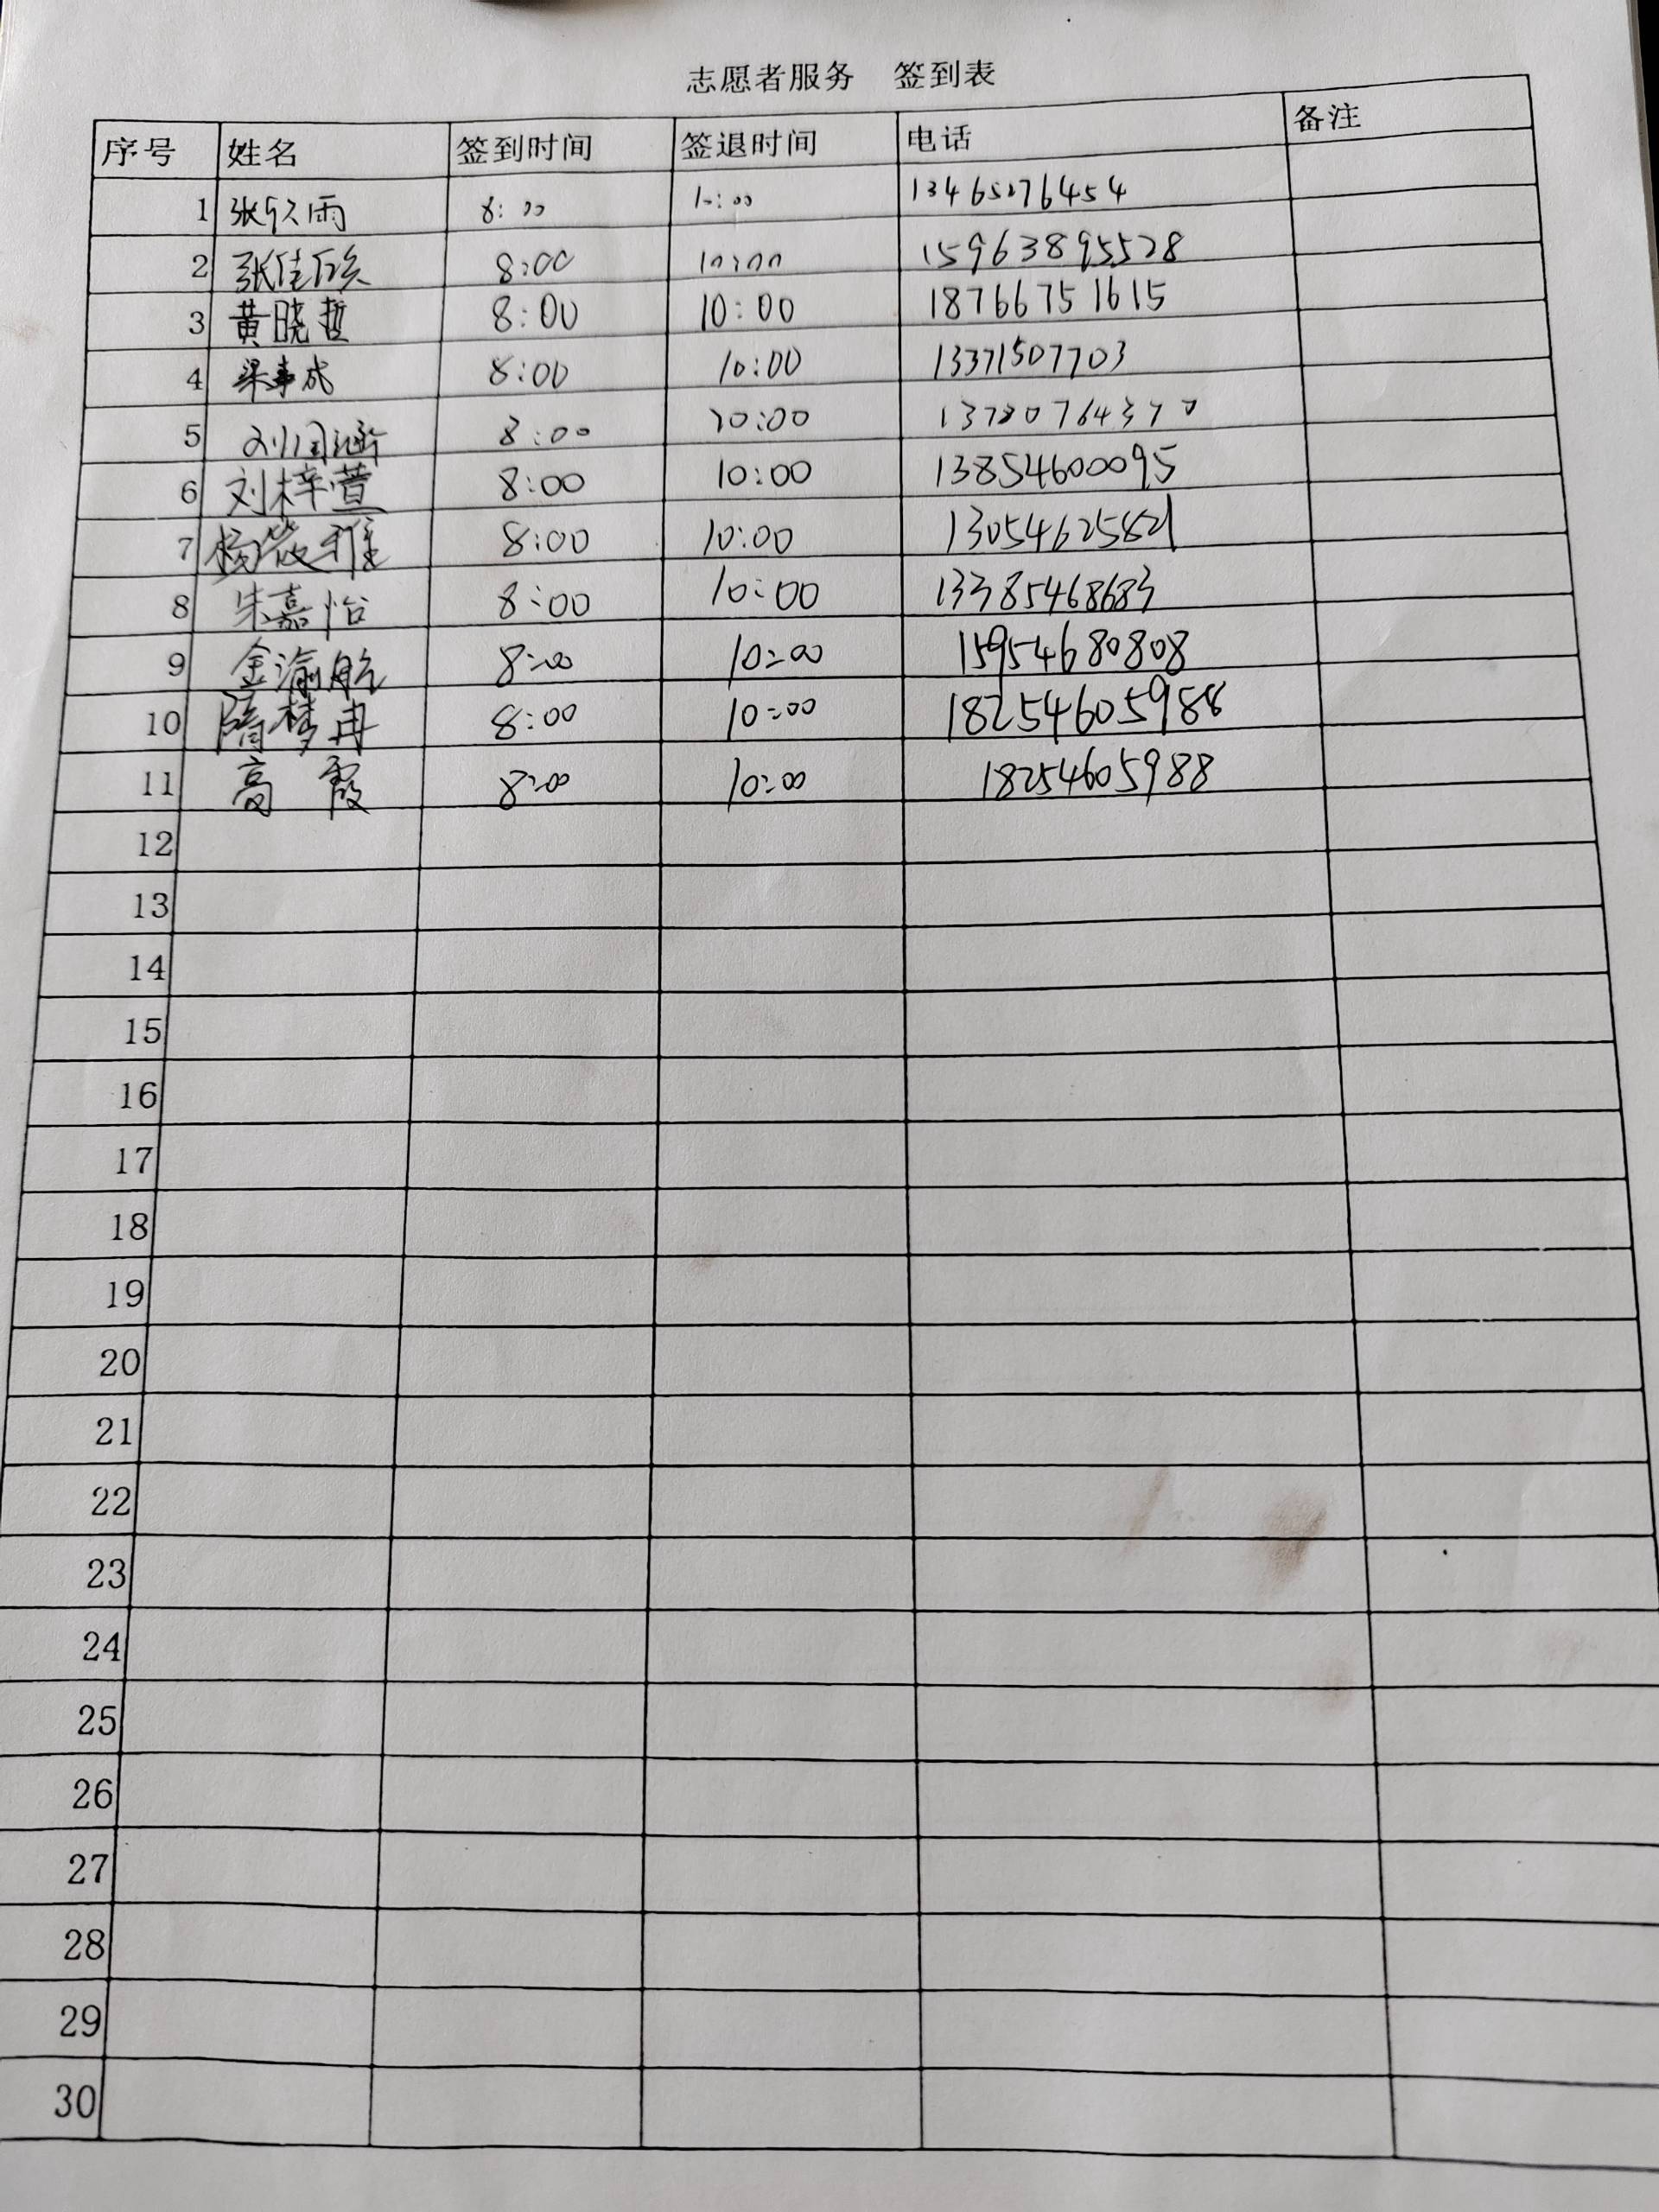 志愿者服务 签到表
序号 姓名 签到时间 签退时间 电话 备注
1 8:00 10:00 13465276454
2 张佳欣 8:00 10:00 15963895528
3 黄晓哲 8:00 10:00 18766751615
4 梁事成 8:00 10:00 13371507703
5 8:00 10:00
6 刘梓萱 8:00 10:00 13854600095
7 杨筱雅 8:00 10:00
8 朱嘉怡 8:00 10:00 13385468683
9 金渝航 8:00 10:00 15954680808
10 隋梦冉 8:00 10:00 18254605988
11 高霞 8:00 10:00 18254605988
12
13
14
15
16
17
18
19
20
21
22
23
24
25
26
27
28
29
30